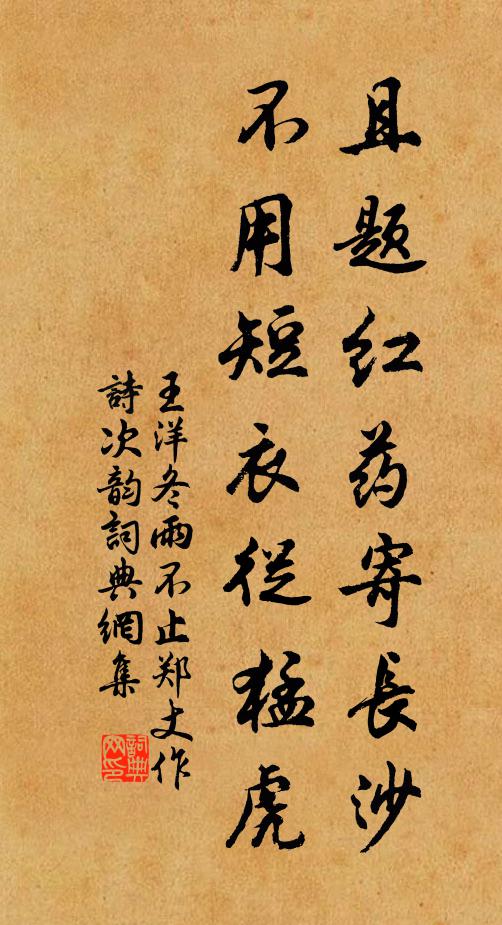 且题红药寄長沙
不用短衣從猛虎
王洋冬雨不止郑丈作
詩次韵詞典網集
詞典网印